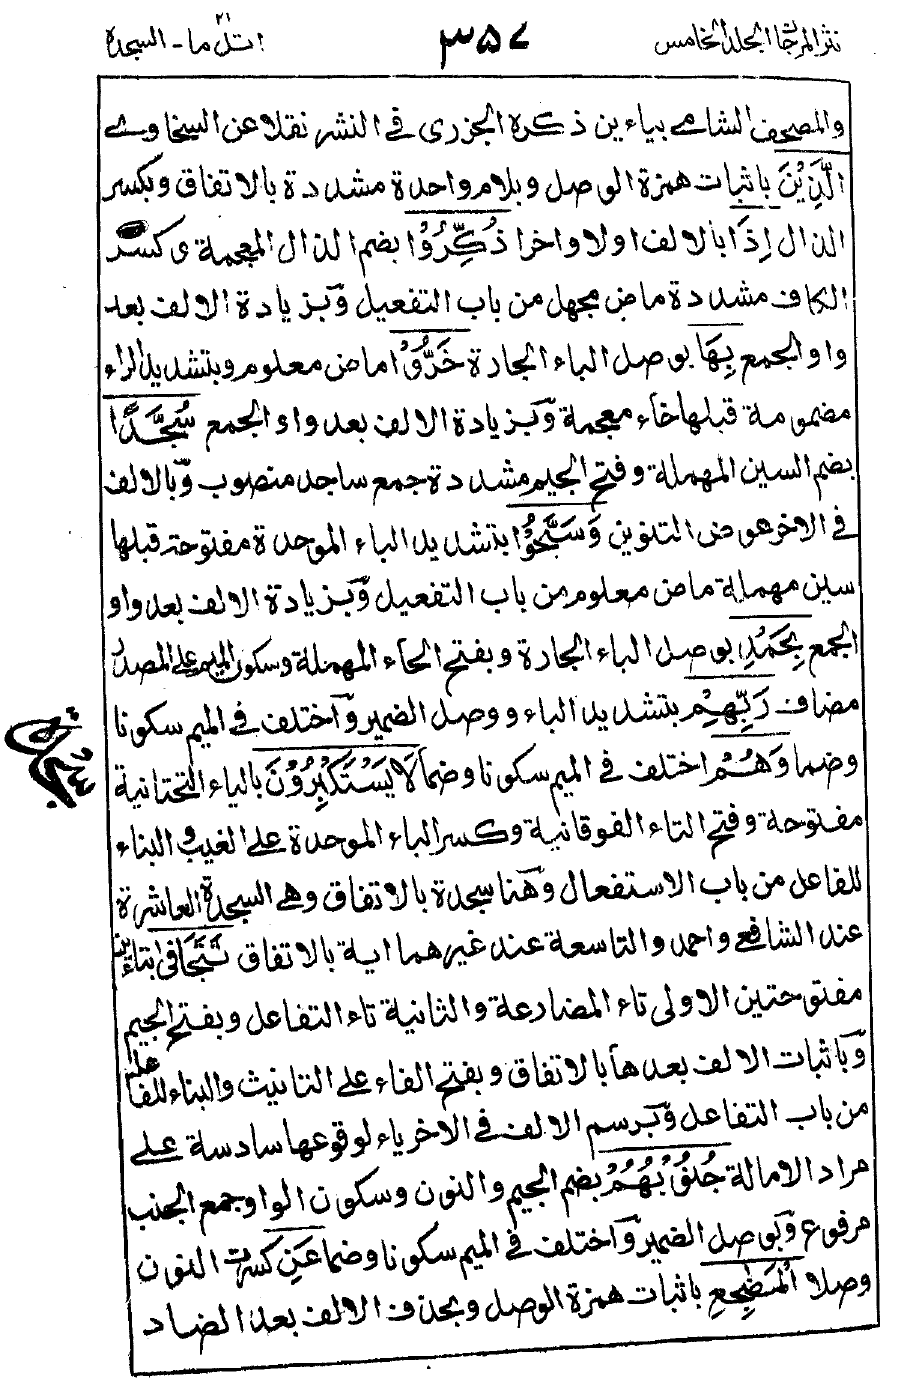 نثر المرجان المجلد الخامس
٣٥٧
اتل ما۲۱ - السجدة
والمصحف الشامي بياءين ذكره الجزرى في النشر نقلا عن السخاوي
الَّذِيْنَ باثبات همزة الوصل وبلام واحدة مشددة بالاتفاق وبكسر
الذال إِذَا بالالف اولا واخرا ذُكِّرُوْا بضم الذال المعجمة وكسر
الكاف مشددة ماض مجهل من باب التفعيل وَبزيادة الالف بعد
واو الجمع بِهَا بوصل الباء الجارة خَرُّوْا ماض معلوم وبتشديد الراء
مضمومة قبلها خاء معجمة وَبزيادة الالف بعد واو الجمع سُجَّدًا
بضم السين المهملة وفتح الجيم مشددة جمع ساجد منصوب وَبالالف
في الاخر عوض التنوين وَسَبَّحُوْا بتشديد الباء الموحدة مفتوحة قبلها
سين مهملة ماض معلوم من باب التفعيل وَبزيادة الالف بعد واو
الجمع بِحَمْدِ بوصل الباء الجارة وبفتح الحاء المهملة وسكون الميم على المصدر
مضاف رَبِّهِمْ بتشديد الباء ووصل الضمير وَاختلف في الميم سكونا
وضما وَهُمْ اختلف في الميم سكونا وضما لَا يَسْتَكْبِرُوْنَ بالياء التحتانية
السجدة
مفتوحة وفتح التاء الفوقانية وكسر الباء الموحدة على الغيب والبناء
للفاعل من باب الاستفعال وَهنا سجدة بالاتفاق وهي السجدة العاشرة
عند الشافعي واحمد والتاسعة عند غيرهما اية بالاتفاق تَتَجَافٰى بتاءين
مفتوحتين الاولى تاء المضارعة والثانية تاء التفاعل وبفتح الجيم
وَباثبات الالف بعدها بالاتفاق وبفتح الفاء على التانيث والبناء للفاعل
من باب التفاعل وَبرسم الالف في الاخر ياء لوقوعها سادسة على
مراد الامالة جُنُوْبُهُمْ بضم الجيم والنون وسكون الواو جمع الجنب
مرفوع وَبوصل الضمير وَاختلف في الميم سكونا وضما عَنِ كسرت النون
وصلا الْمَضٰجِعِ باثبات همزة الوصل وبحذف الالف بعد الضاد